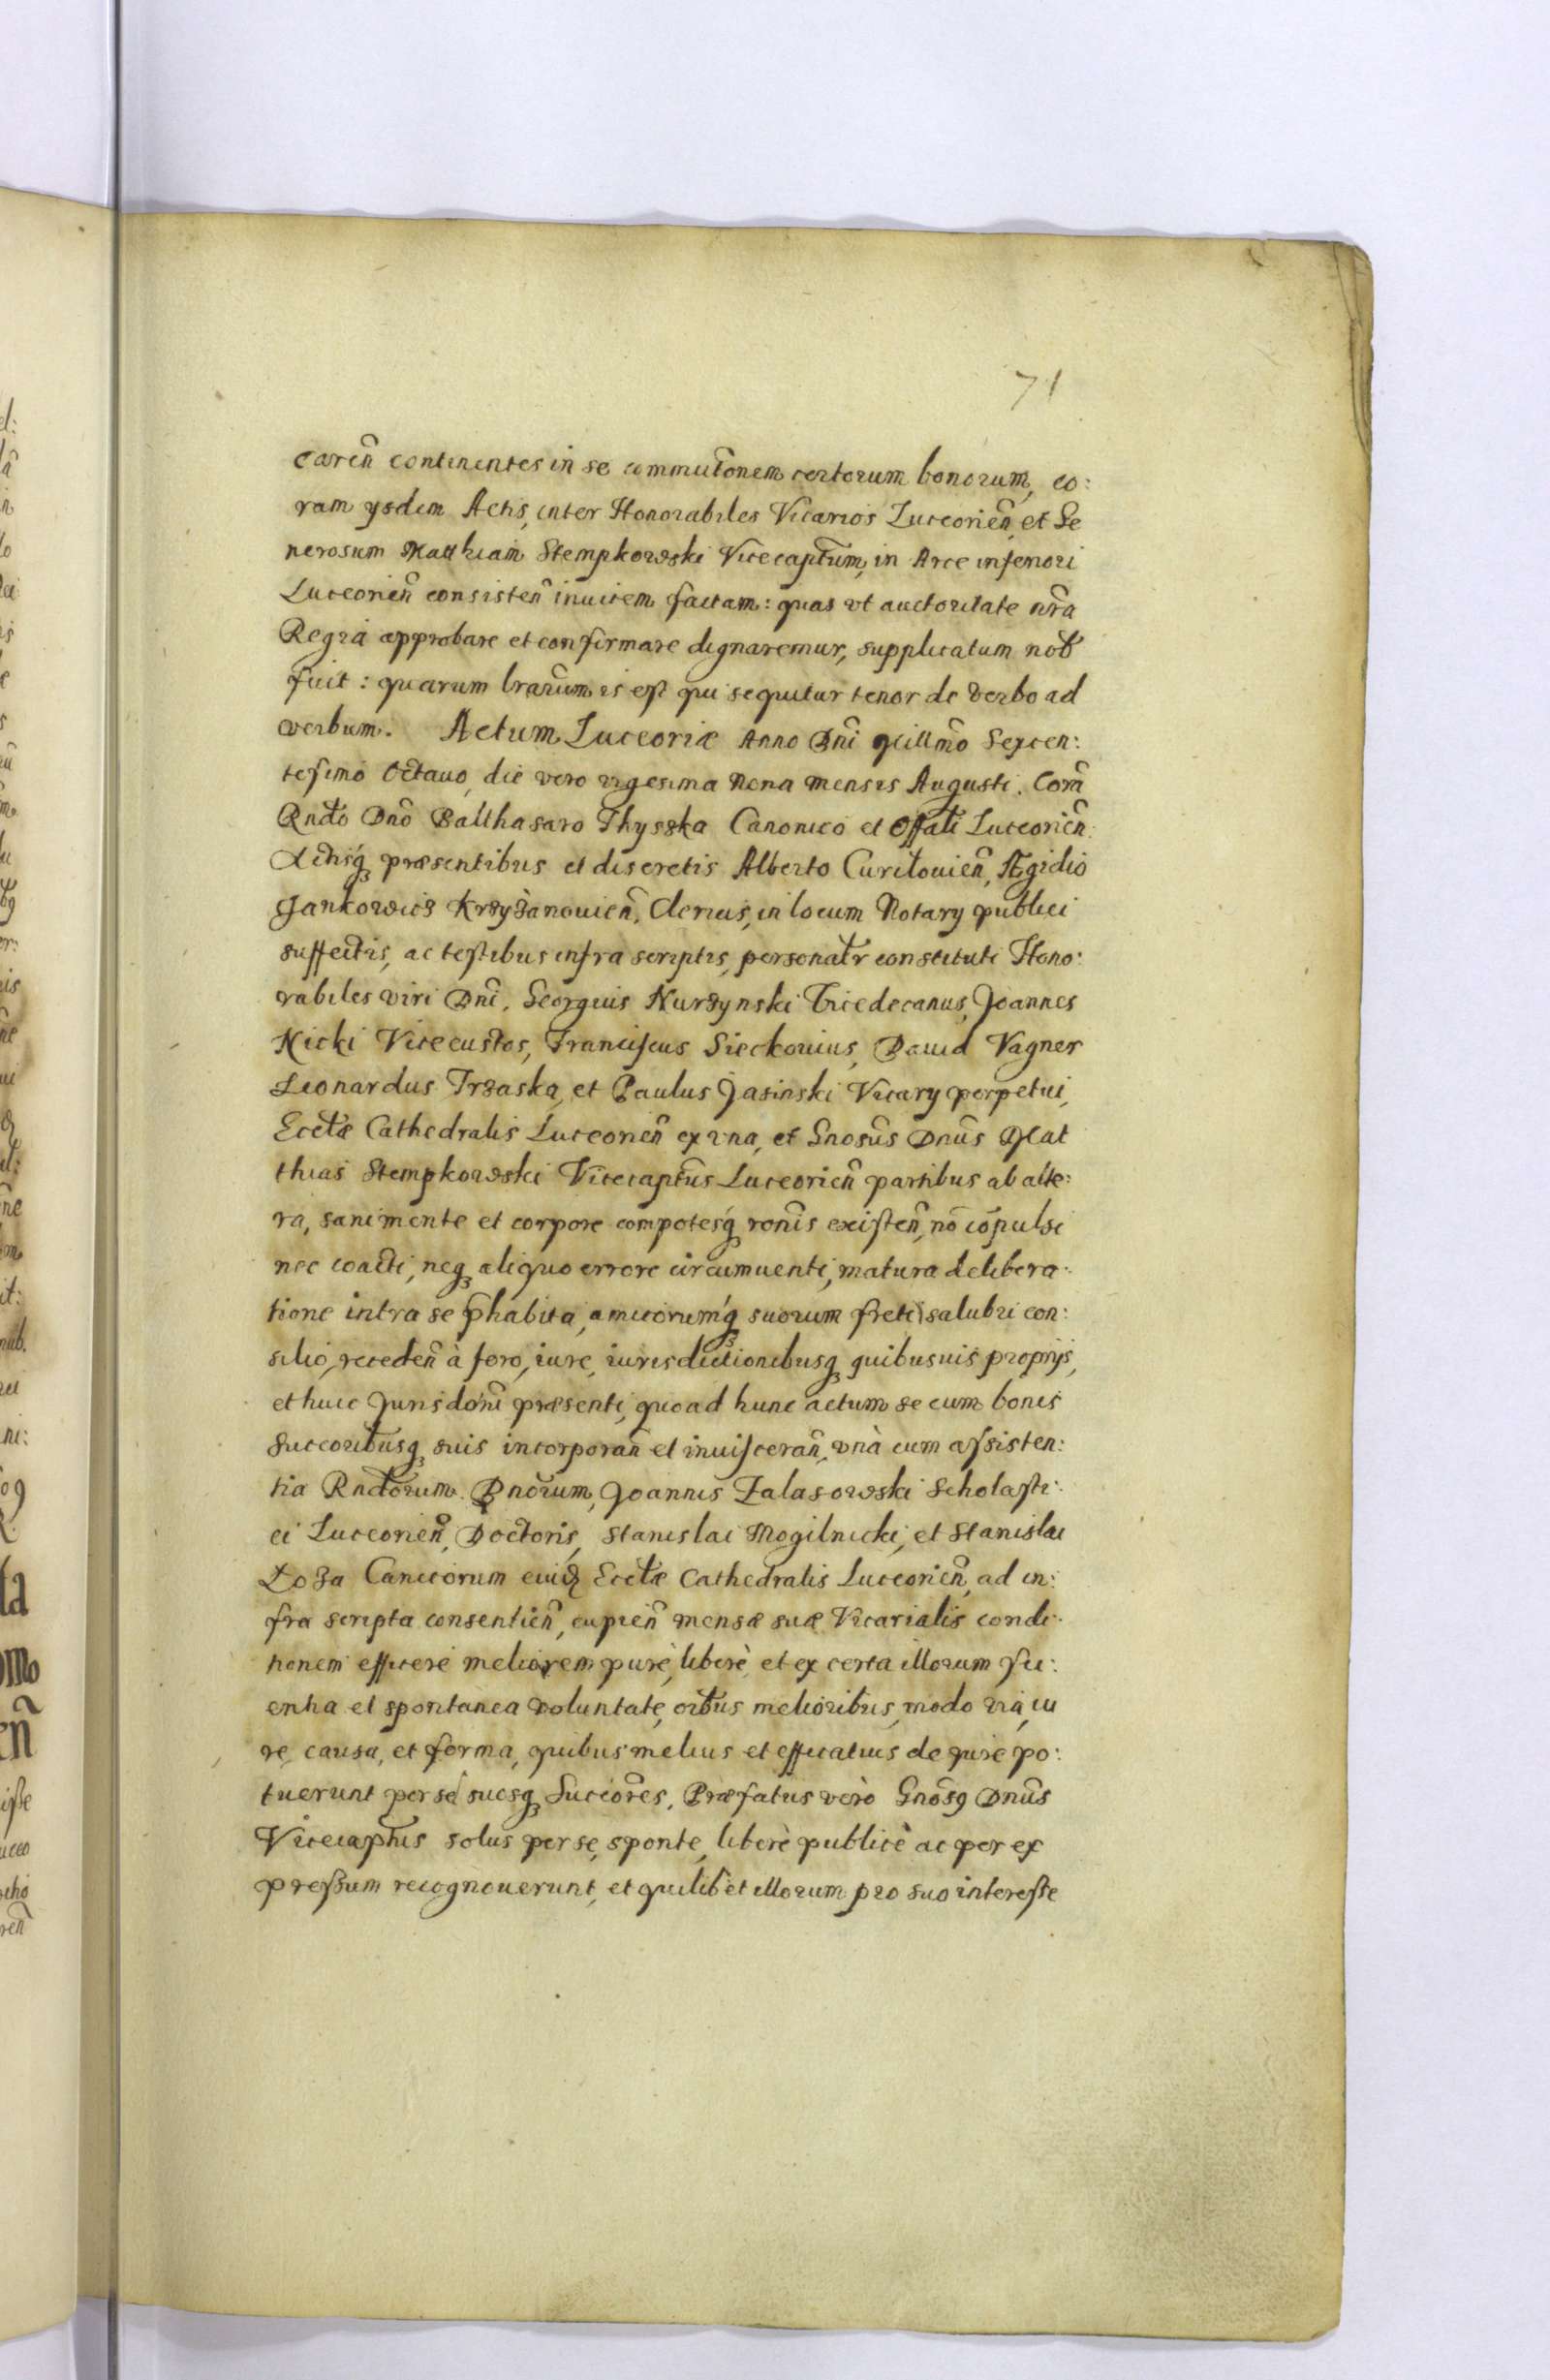 71
caren̄ continentes in se commutōnem certorum bonorum, co:
ram ysdem Actis, inter Honorabiles Vicarios Luceorien̄, et Ge
nerosum Matthiam Stempkowski Vicecapt̄um, in Arce inferiori
Luceorien̄ consisten̄ inuicem factam: quas vt auctoritate nr̄a
Regia approbare et confirmare dignaremur, supplicatum nob̄
fuit: quarum lrārum is est qui sequitur tenor de verbo ad
verbum. Actum Luceoriæ Anno Dnī Millmō Sexcen:
tesimo Octauo, die vero vigesima nona mensis Augusti. Corā
Rndō Dnō Balthasaro Thyszka Canonico et Offāli Luceorien̄.
Actisq́ præsentibus et discretis Alberto Curiłouien̄, Ægidio
Jankowicz Krzyżanouien̄, Clericis, in locum Notary publici
suffectis, ac testibus infra scriptis, personalr̄ constituti Hono:
rabiles viri Dnī. Georgius Nurzynski Vicedecanus, Joannes
Nicki Vicecustos, Franciscus Sieckouius, Dauid Vagner
Leonardus Trzaska, et Paulus Jasinski Vicary perpetui,
Eccłæ Cathedralis Luceorien̄ ex vna, et Gnosūs Dnūs Mat
thias Stempkowski Vicecaptūs Luceorien̄ partibus ab alte:
ra, sani mente et corpore compotesq́ ronīs existen̄, nō cōpulsi
nec coacti, neq aliquo errore circumuenti, matura delibera:
tione intra se p̄habita, amicorumq́ suorum freti salubri con:
silio, receden̄ à foro, iure, iurisdictionibusq quibusuis proprijs,
et huic Jurisdōni præsenti, quo ad hunc actum se cum bonis
Succoribusq suis incorporan̄ et inuisceran̄, vnà cum assisten:
tia Rndōrum Dnōrum, Joannis Zalasowski Scholasti:
ci Luceorien̄, Doctoris, Stanislai Mogilnicki, et Stanislai
Łoza Canicōrum eiusd Eccłæ Cathedralis Luceorien̄, ad in:
fra scripta consentien̄, cupien̄ mensæ suæ Vicarialis condi:
tionem efficere meliorem purè, liberè, et ex certa illorum sci:
entia et spontanea voluntate, oībus melioribus, modo via, iu
re, causa, et forma, quibus melius et efficatius de iure po:
tuerunt per se suosq Succōres, Præfatus verò Gnōs9 Dnūs
Vicecaptūs solus per se, sponte, liberè publicè ac per ex
pressum recognouerunt, et quilibet illorum pro suo interesse